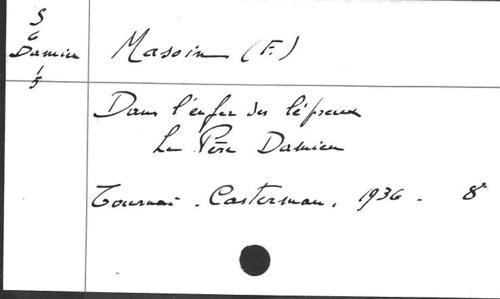 S
6
Damien
15
Masoin (F.)
Dans l'enfer des lépreux
Le Père Damien
Tournai. Casterman, 1936. 8°